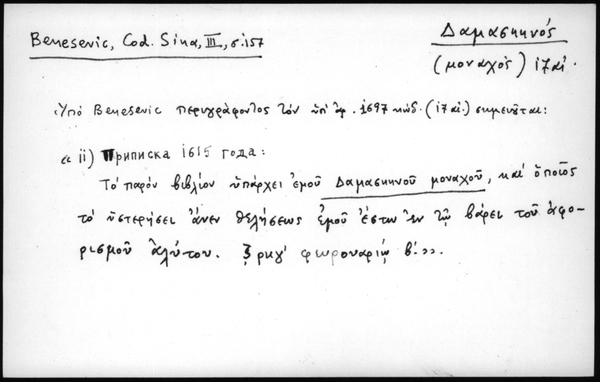 Benesevic, Cod. Sina, III, σ. 157
Δαμασκηνός
(μοναχός) ι7 αἰ.
Ὑπό Benesevic περιγράφοντος τόν ὑπ' ἀρ. 1697 κώδ. (ι7 αἰ.) σημειοῦται:
« ii) Приписка 1615 года:
Τό παρόν βιβλίον ὑπάρχει ἐμοῦ Δαμασκηνοῦ μοναχοῦ, καί ὅποῖος
τό ὑστερήσει ἄνευ θελήσεως ἐμοῦ ἔστω ἐν τῷ βάρει τοῦ ἀφο-
ρισμοῦ ἀλύτου. ζρκγ' φευροναρίῳ β'. »».